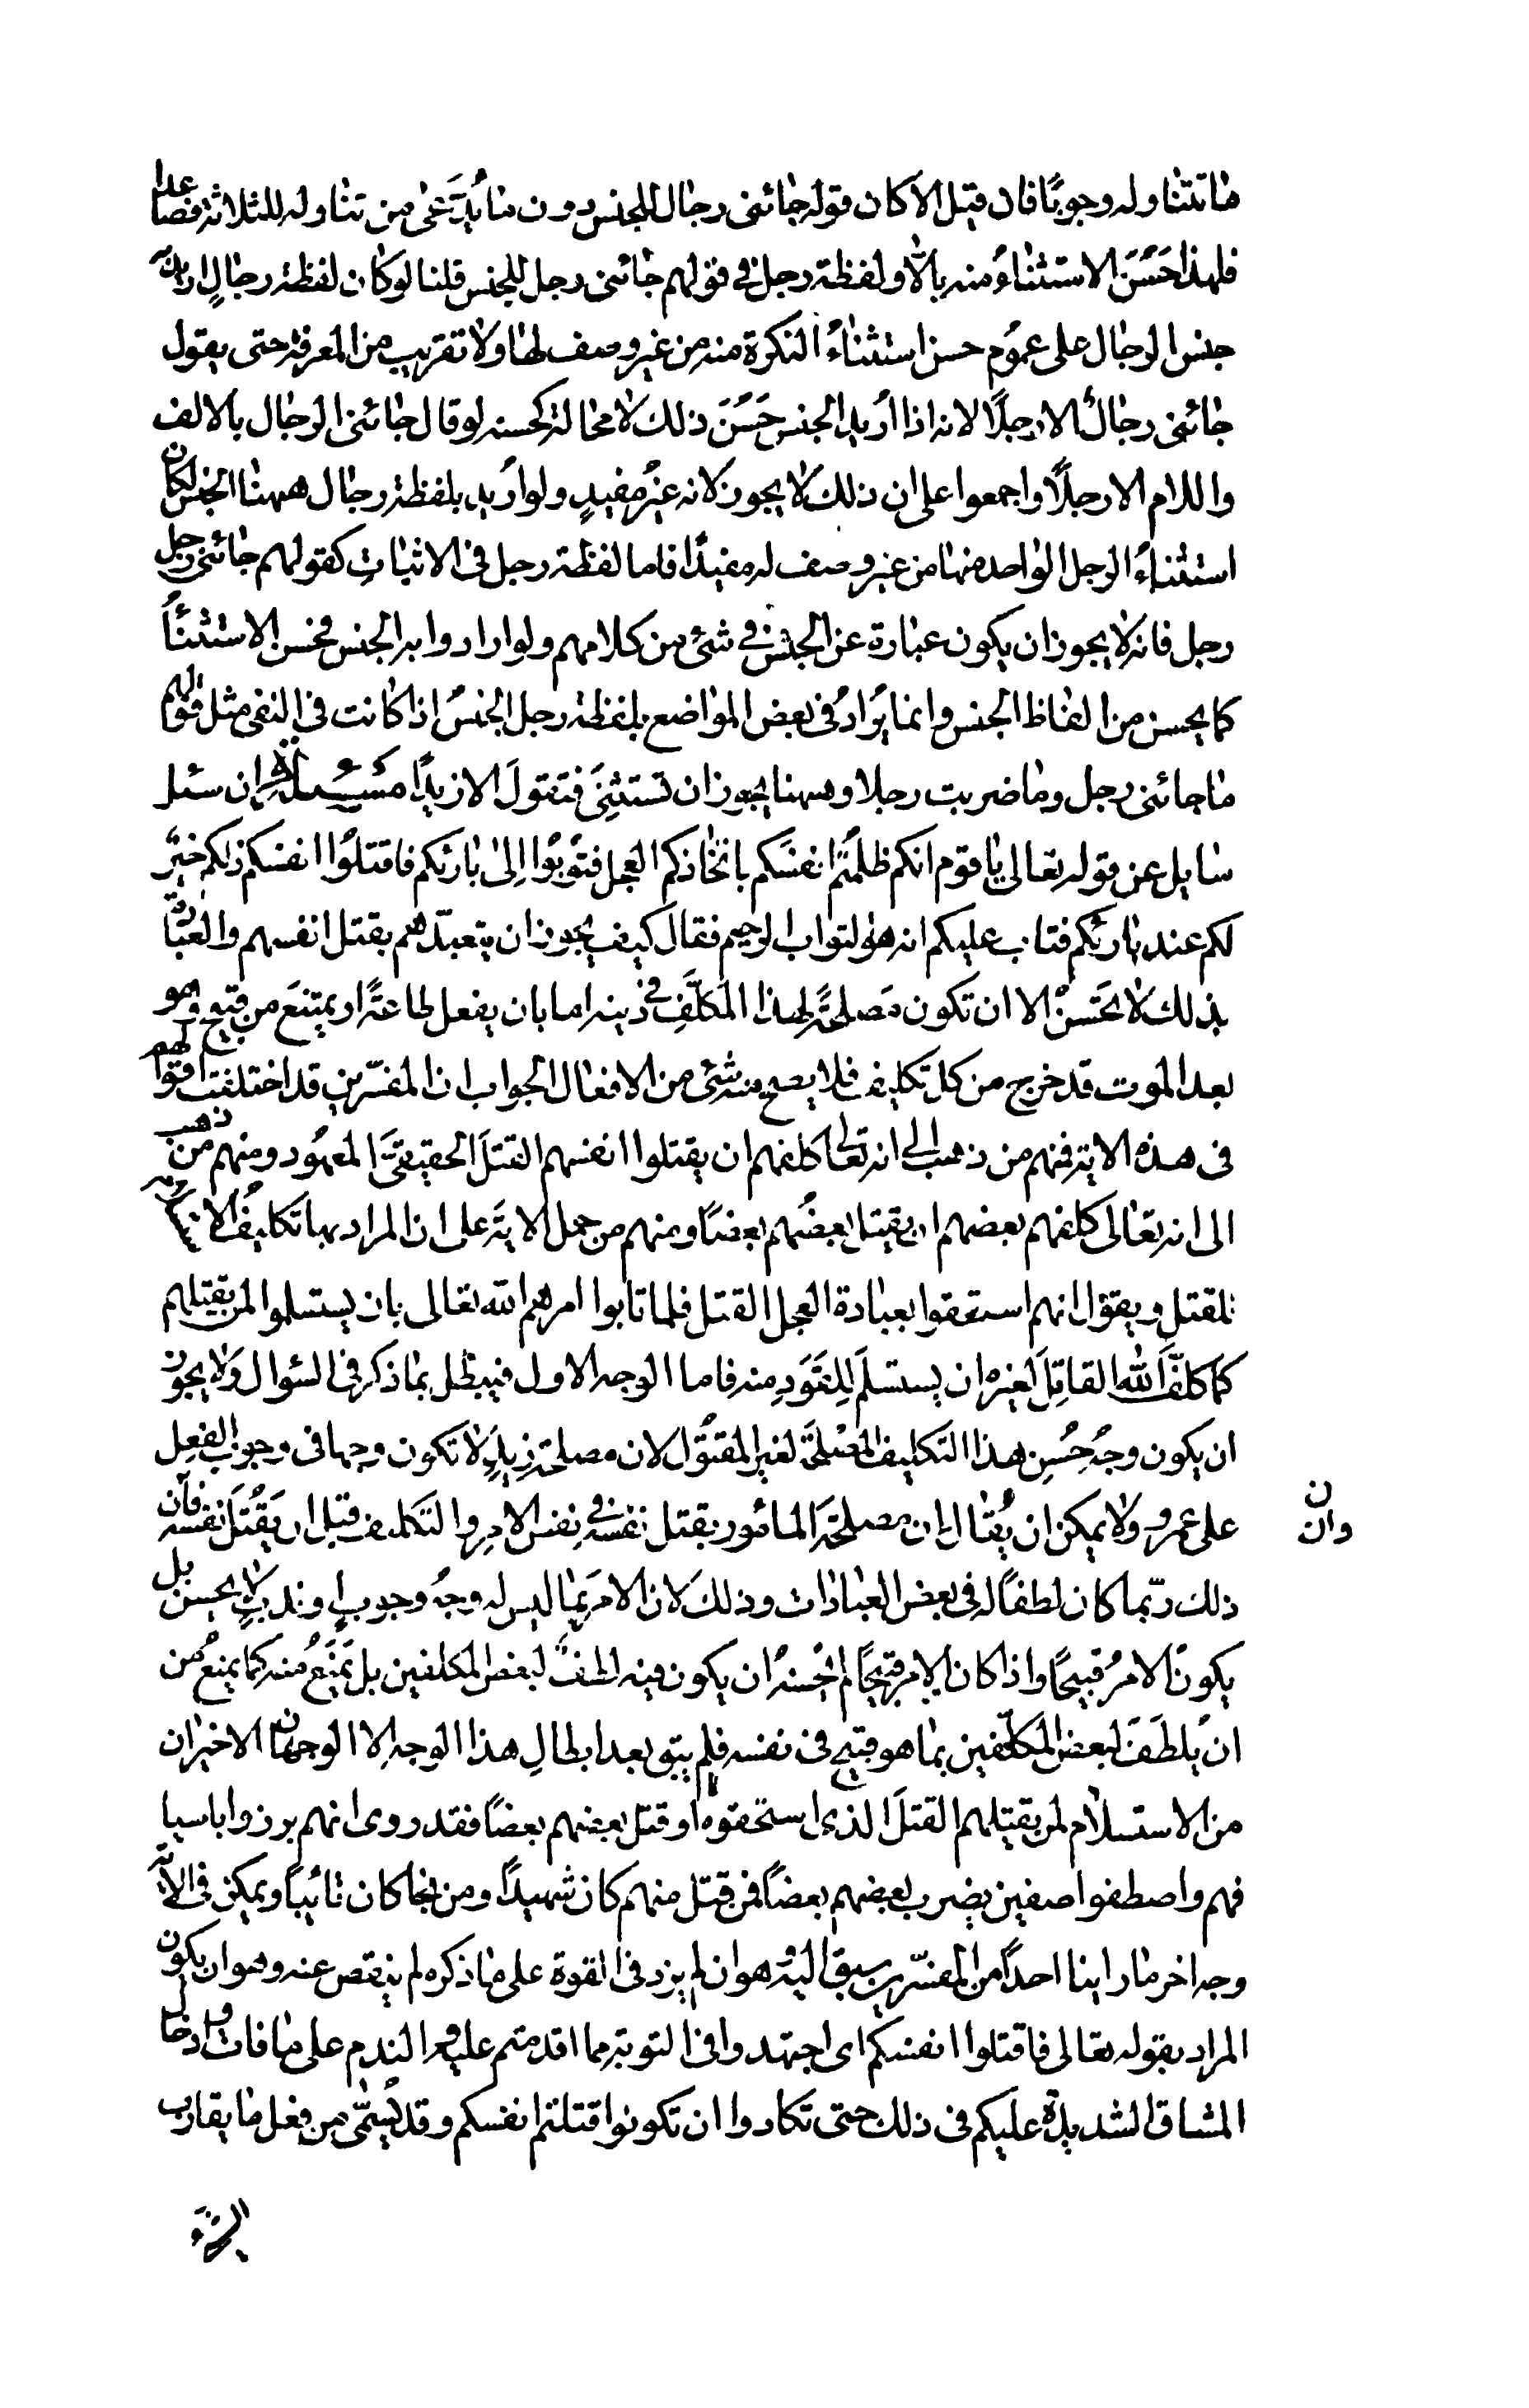 ما تتناوله وجوبًا فان قيل الا كان قوله جائنى رجال للجنس دون ما يدّعى من تناوله للثلاثة فصاعدا
فلهذا حَسُنَ الاستثناءُ منه بالّا ولفظة رجل فى قولهم جائنى رجل للجنس قلنا لو كان لفظة رجالٍ
جنس الرجال على عموم حسن استثناءُ النكرة منه من غير وصف لها ولا تقريب من المعرفة حتى يقول
جائنى رجالٌ الا رجلًا لانه اذا اُريد الجنس حَسُنَ ذلك لا محالة كحسنه لو قال جائنى الرجال بالالف
واللام الا رجلًا واجمعوا على ان ذلك لا يجوز لانه غيرُ مفيدٍ ولو اُريد بلفظة رجال ههنا الجنس لكان
استثناءُ الرجل الواحد منها من غير وصف له مفيدًا فاما لفظة رجل فى الاثباتِ كقولهم جائنى رجل
رجل فانه لا يجوز ان يكون عبارة عن الجنس فى شئ من كلامهم ولو ارادوا به الجنس لحسن الاستثناءُ
كما يحسن من الفاظ الجنس وانما يُرادُ فى بعض المواضع بلفظة رجل الجنسُ اذا كانت فى النفى مثل قولهم
ما جائنى رجل وما ضربت رجلا وههنا يجوز ان تستثنِىَ فتقولَ الا زيدًا مسئلة ان سئل
سايل عن قوله تعالى يا قوم انكم ظلمتُم انفسَكم باتّخاذكم العجل فتُوبُوا اِلىٰ بارئكم فاقتلُوا انفسكم ذلكم خيرٌ
لكم عند بارئكم فتاب عليكم انه هو التواب الرحيم فقال كيف يجوز ان يتعبدّهم بقتل انفسهم والعبادة
بذلك لا تحَسنُ الا ان تكون مَصلحةً لهذا المكلَّفِ فى دينه اما بان يفعل طاعةً او يمتنعَ من قبيح وهو
بعد الموت قد خرج من كل تكليف فلا يصح منه شئ من الافعال الجواب ان المفسّرين قد اختلفت اقوالهم
فى هذه الاية فمنهم من ذهب الى انه تعالى كلفهم ان يقتلوا انفسهم القتلَ الحقيقىَّ المعهُود ومنهم من ذهب
الى انه تعالى كلفهم بعضهم ان يقتل بعضُهم بعضًا ومنهم من حمل الاية على ان المراد بها تكليفُ
للقتل ويقول انهم استحقوا بعبادة العجل القتل فلما تابوا امرهم الله تعالى بان يستسلموا لمن يقتلهم
كما كلّفَ اللهُ القاتِلَ لغيره ان يستسلمَ للِقَوَدِ منه فاما الوجه الاول فيبطل بما ذكر فى السئوال وَلا يجوز
ان يكون وجهُ حُسنِ هذا التكليف المصْلحةَ لغير المقتُول لان مصلحة زيدٍ لا تكون وجها فى وجوب الفعل
على عمرو ولا يمكن ان يُقال ان مصلحةَ المامُور بقتل نفسه فى نفس الامر والتكليف قبل ان يَقتُلَ نفسه فان
ذلك ربّما كان لطفًا له فى بعض العبادات وذلك لان الامرَ بما ليس له وجهُ وجوبٍ او ندبٍ لا يحسن بل
يكونُ الامرُ قبيحًا واذا كان الامر قبيحًا لم يحُسنهُ ان يكون فيه لطفٌ لبعض المكلفين بل يُمنَعُ منه كما يمنعُ من
ان يُلطَفَ لبعض المكلّفين بما هو قبيح فى نفسه فلم يبق بعد ابطالِ هذا الوجه الا الوجهان الاخيران
من الاستسلام لمن يقتلهم القتلَ الذى استحقوه او قتل بعضهم بعضًا فقد روى انهم برزوا باسيا
فهم واصطفوا صفين يضرب بعضهم بعضًا فمن قتل منهم كان شهيدًا ومن نجا كان تائبًا ويمكن فى الاية
وجه اخر ما راينا احدًا من المفسّرين سبق اليه وهو ان لم يزد فى القوة على ما ذكره لم ينقص عنه وهو ان يكون
المراد بقوله تعالى فاقتلوا انفسكم اى اجتهدوا فى التوبة مما اقدمتم عليه والندم على ما فات وادخال
المشاق الشديدة عليكم فى ذلك حتى تكادوا ان تكونوا قتلتم انفسكم وقد يُسمّى من فعل ما يقارب
الشئ
ن
وان